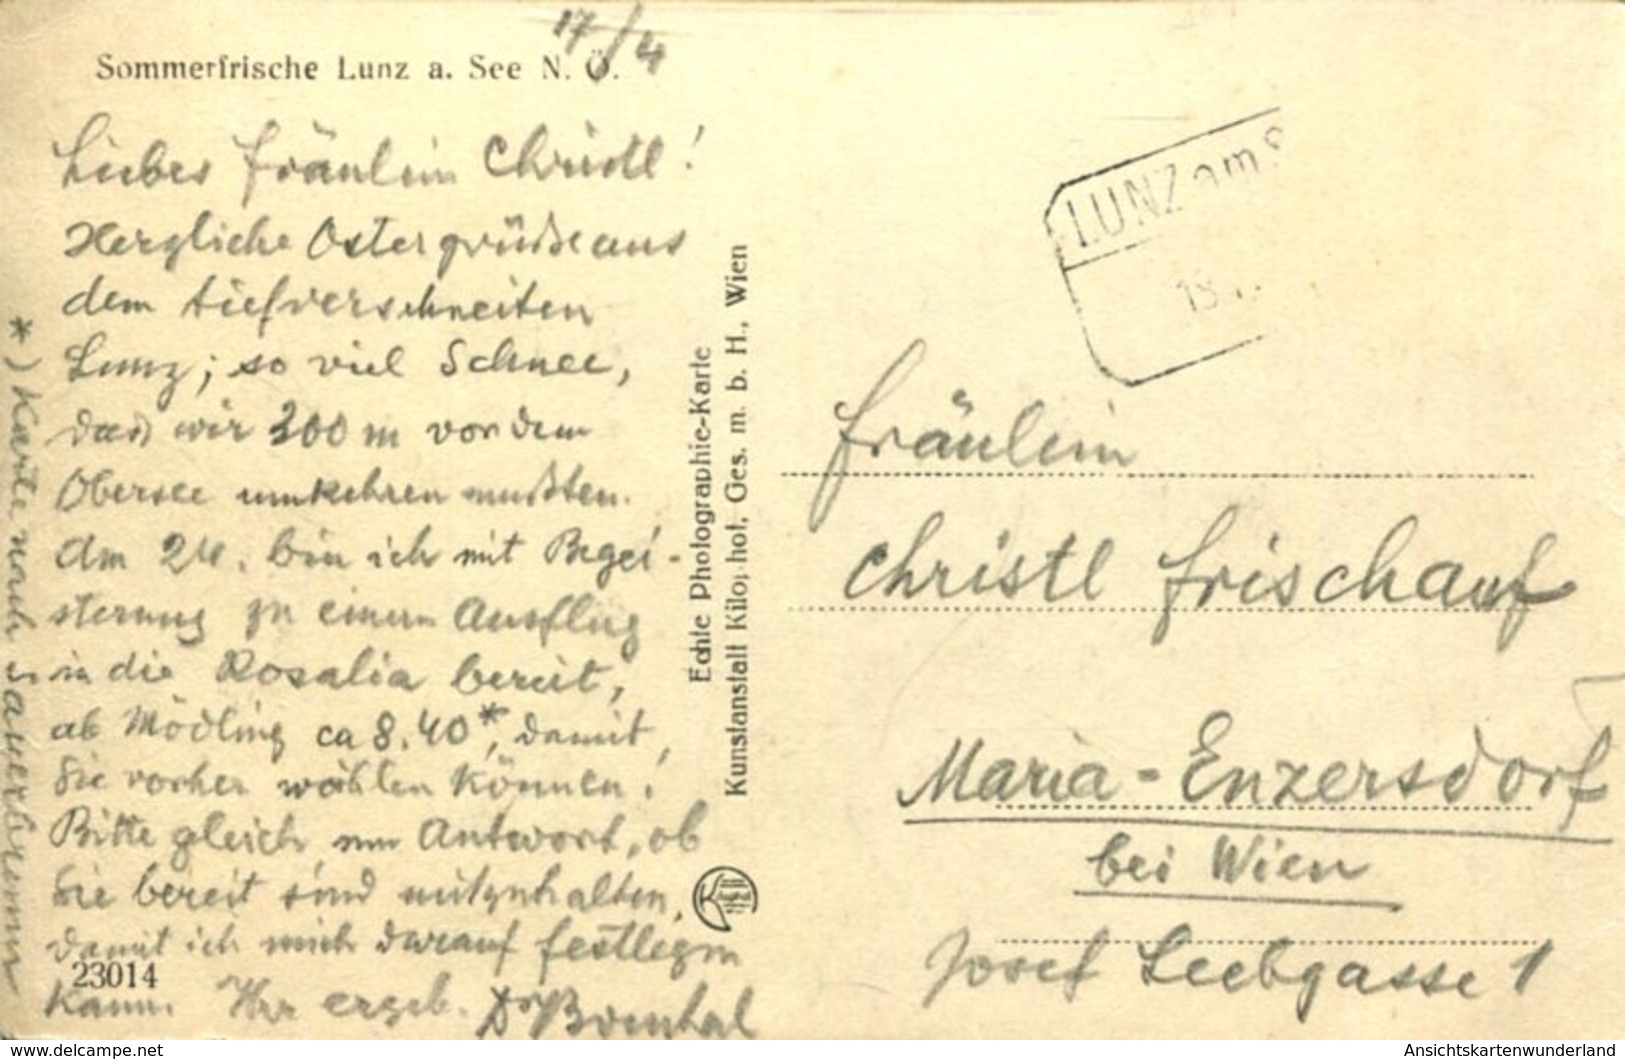 17/4
Sommerfrische Lunz a. See N. Ö.
Liebes Fräulein Christl!
Herzliche Ostergrüße aus
dem tiefverschneiten
Lunz; so viel Schnee,
daß wir 300 m vor dem
Obersee umkehren mußten.
Am 24. bin ich mit Begei-
sterung zu einem Ausflug
in die Rosalia bereit,
ab Mödling ca 8.40*, damit
Sie vorher wählen können!
Bitte gleich um Antwort, ob
Sie bereit sind mitzuhalten,
damit ich mich darauf festlegen
kann. Ihr ergeb. Dr
*) Karte nach
23014
Echte Photographie-Karte
Kunstanstalt Kilophot, Ges. m. b. H., Wien
LUNZ am S
18
Fräulein
Christl Frischauf
Maria-Enzersdorf
bei Wien
Josef Leebgasse 1
www.delcampe.net
Ansichtskartenwunderland